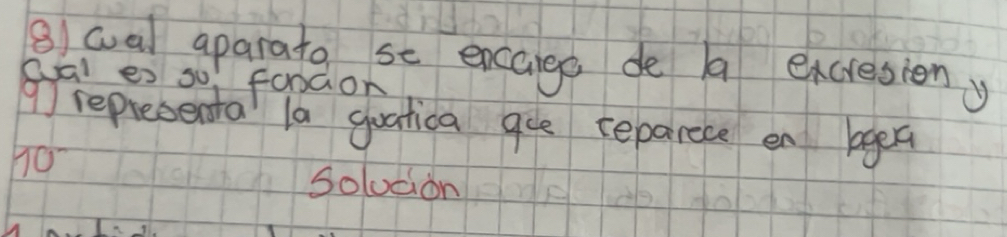 8) cual aparato se encarga de la excresion y
cual es su funcion
9) representa la guatica que reparece en
10-
Solución